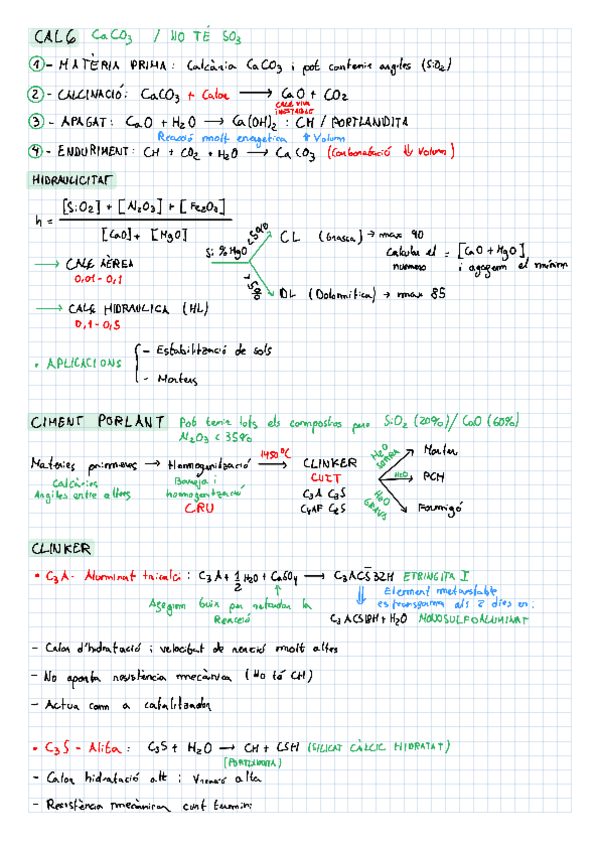 CALÇ CaCO3 / NO TÉ SO3
1 - MATÈRIA PRIMA: Calcària CaCO3 i pot contenir argiles (SiO2)
2 - CALCINACIÓ: CaCO3 + Calor → CaO + CO2
CALÇ VIVA
INESTABLE
3 - APAGAT: CaO + H2O → Ca(OH)2 : CH / PORTLANDITA
Reacció molt energetica ↑ Volum
4 - ENDURIMENT: CH + CO2 + H2O → CaCO3 (Carbonatació ↓ Volum)
HIDRAULICITAT
h = [SiO2] + [Al2O3] + [Fe2O3] / [CaO] + [MgO]
→ CALÇ AÈREA
0,01 - 0,1
Si % MgO
< 5% CL (Grassa) → max 90
> 5% DL (Dolomítica) → max 85
Calcular el numero = [CaO + MgO] i agafem el mínim
→ CALÇ HIDRAULICA (HL)
0,1 - 0,5
• APLICACIONS
- Estabilització de sols
- Morters
CIMENT PORLANT Pot tenir tots els compostos pero SiO2 (20%) / CaO (60%)
Al2O3 < 35%
Matèries primeres → Homogenització 1450ºC → CLINKER
Calcàries
Argiles entre altres
Barreja i
homogenització
CRU
CUIT
C3A C3S
C4AF C2S
H2O SORRA → Morter
H2O → PCH
H2O GRAVA → Formigó
CLINKER
• C3A - Aluminat tricalci : C3A + 1/2 H2O + CaSO4 → C3ACS̄32H ETRINGITA I
Afegim Guix per retardar la
Reacció
Element metaestable
es transforma als 2 dies en:
C3ACS18H + H2O MONOSULFOALUMINAT
- Calor d'hidratació i velocitat de reacció molt altes
- No aporta resistència mecànica (No té CH)
- Actua com a catalitzador
• C3S - Alita: C3S + H2O → CH + CSH (SILICAT CÀLCIC HIDRATAT)
(PORTLANDITA)
- Calor hidratació alt i alta
- Resistència mecànica curt termini